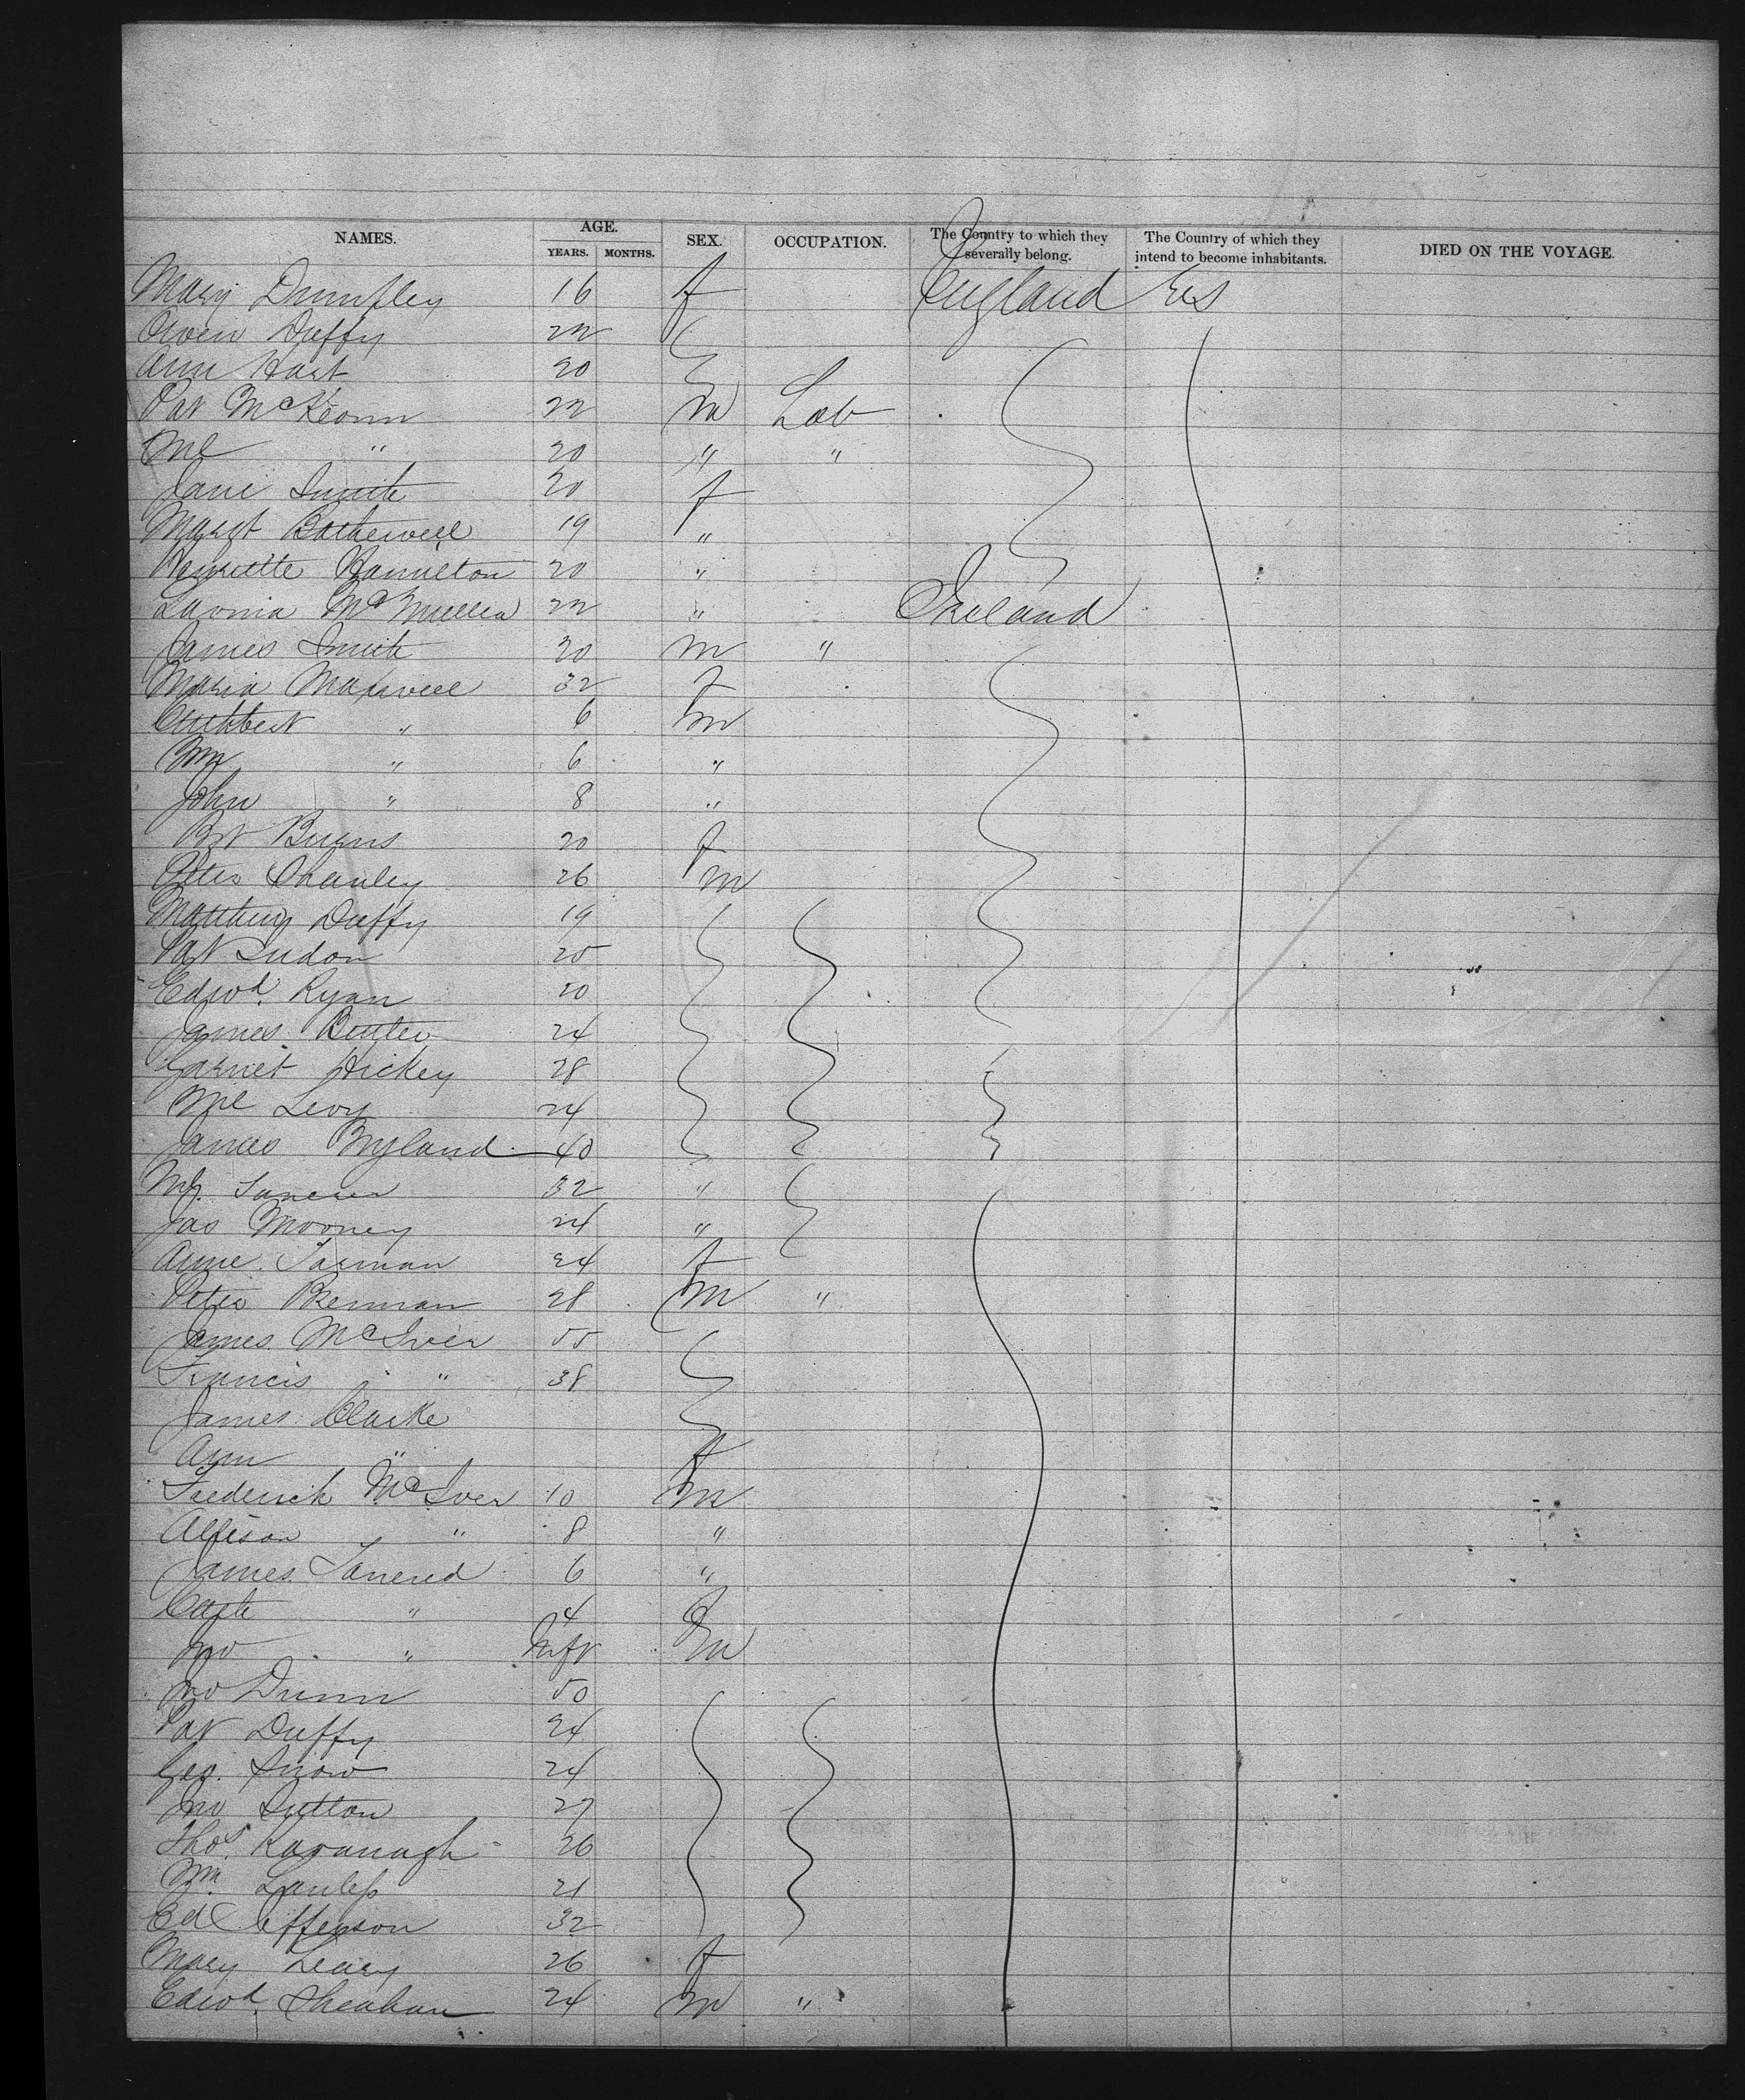 NAMES. AGE. YEARS. MONTHS. SEX. OCCUPATION. The Country to which they severally belong. The Country of which they intend to become inhabitants. DIED ON THE VOYAGE.
Mary 16 f England
Owen Duffy 22
Ann Hart 20
Pat McKeown 22 m Lab
Ml " 20 " "
Jane Smith 20 f
Margt Bothewell 19 "
Henriette Hamilton 20 "
Lavinia McMullen 22 " Ireland
James Smith 20 m "
Maria Maxwell 32 f
Cuthbert " 6 m
Wm " 6 "
John " 8 "
Bt Burns 20 f
Peter Shanley 26 m
Matthew Duffy 19
Pat 20
Edwd. Ryan 20
James Butler 24
Garnet Hickey 28
Ml Levy 24
James Byland 40
32 "
Jas Mooney 24 "
Anne 24 f
Peter Brennan 28 m "
James McIver 55
Francis " 38
James Clarke
Ann " f
Frederick McIver 10 m
Allison " 8 "
James Tancred 6 "
Cath " 4 f
Jno " Inft m
Jno Dunn 50
Pat Duffy 24
Geo. Snow 24
Jno Sutton 27
Thos. Kavanagh 26
Wm. 21
Ed Jefferson 32
Mary Leary 26 f
Edwd. Sheahan 24 m "